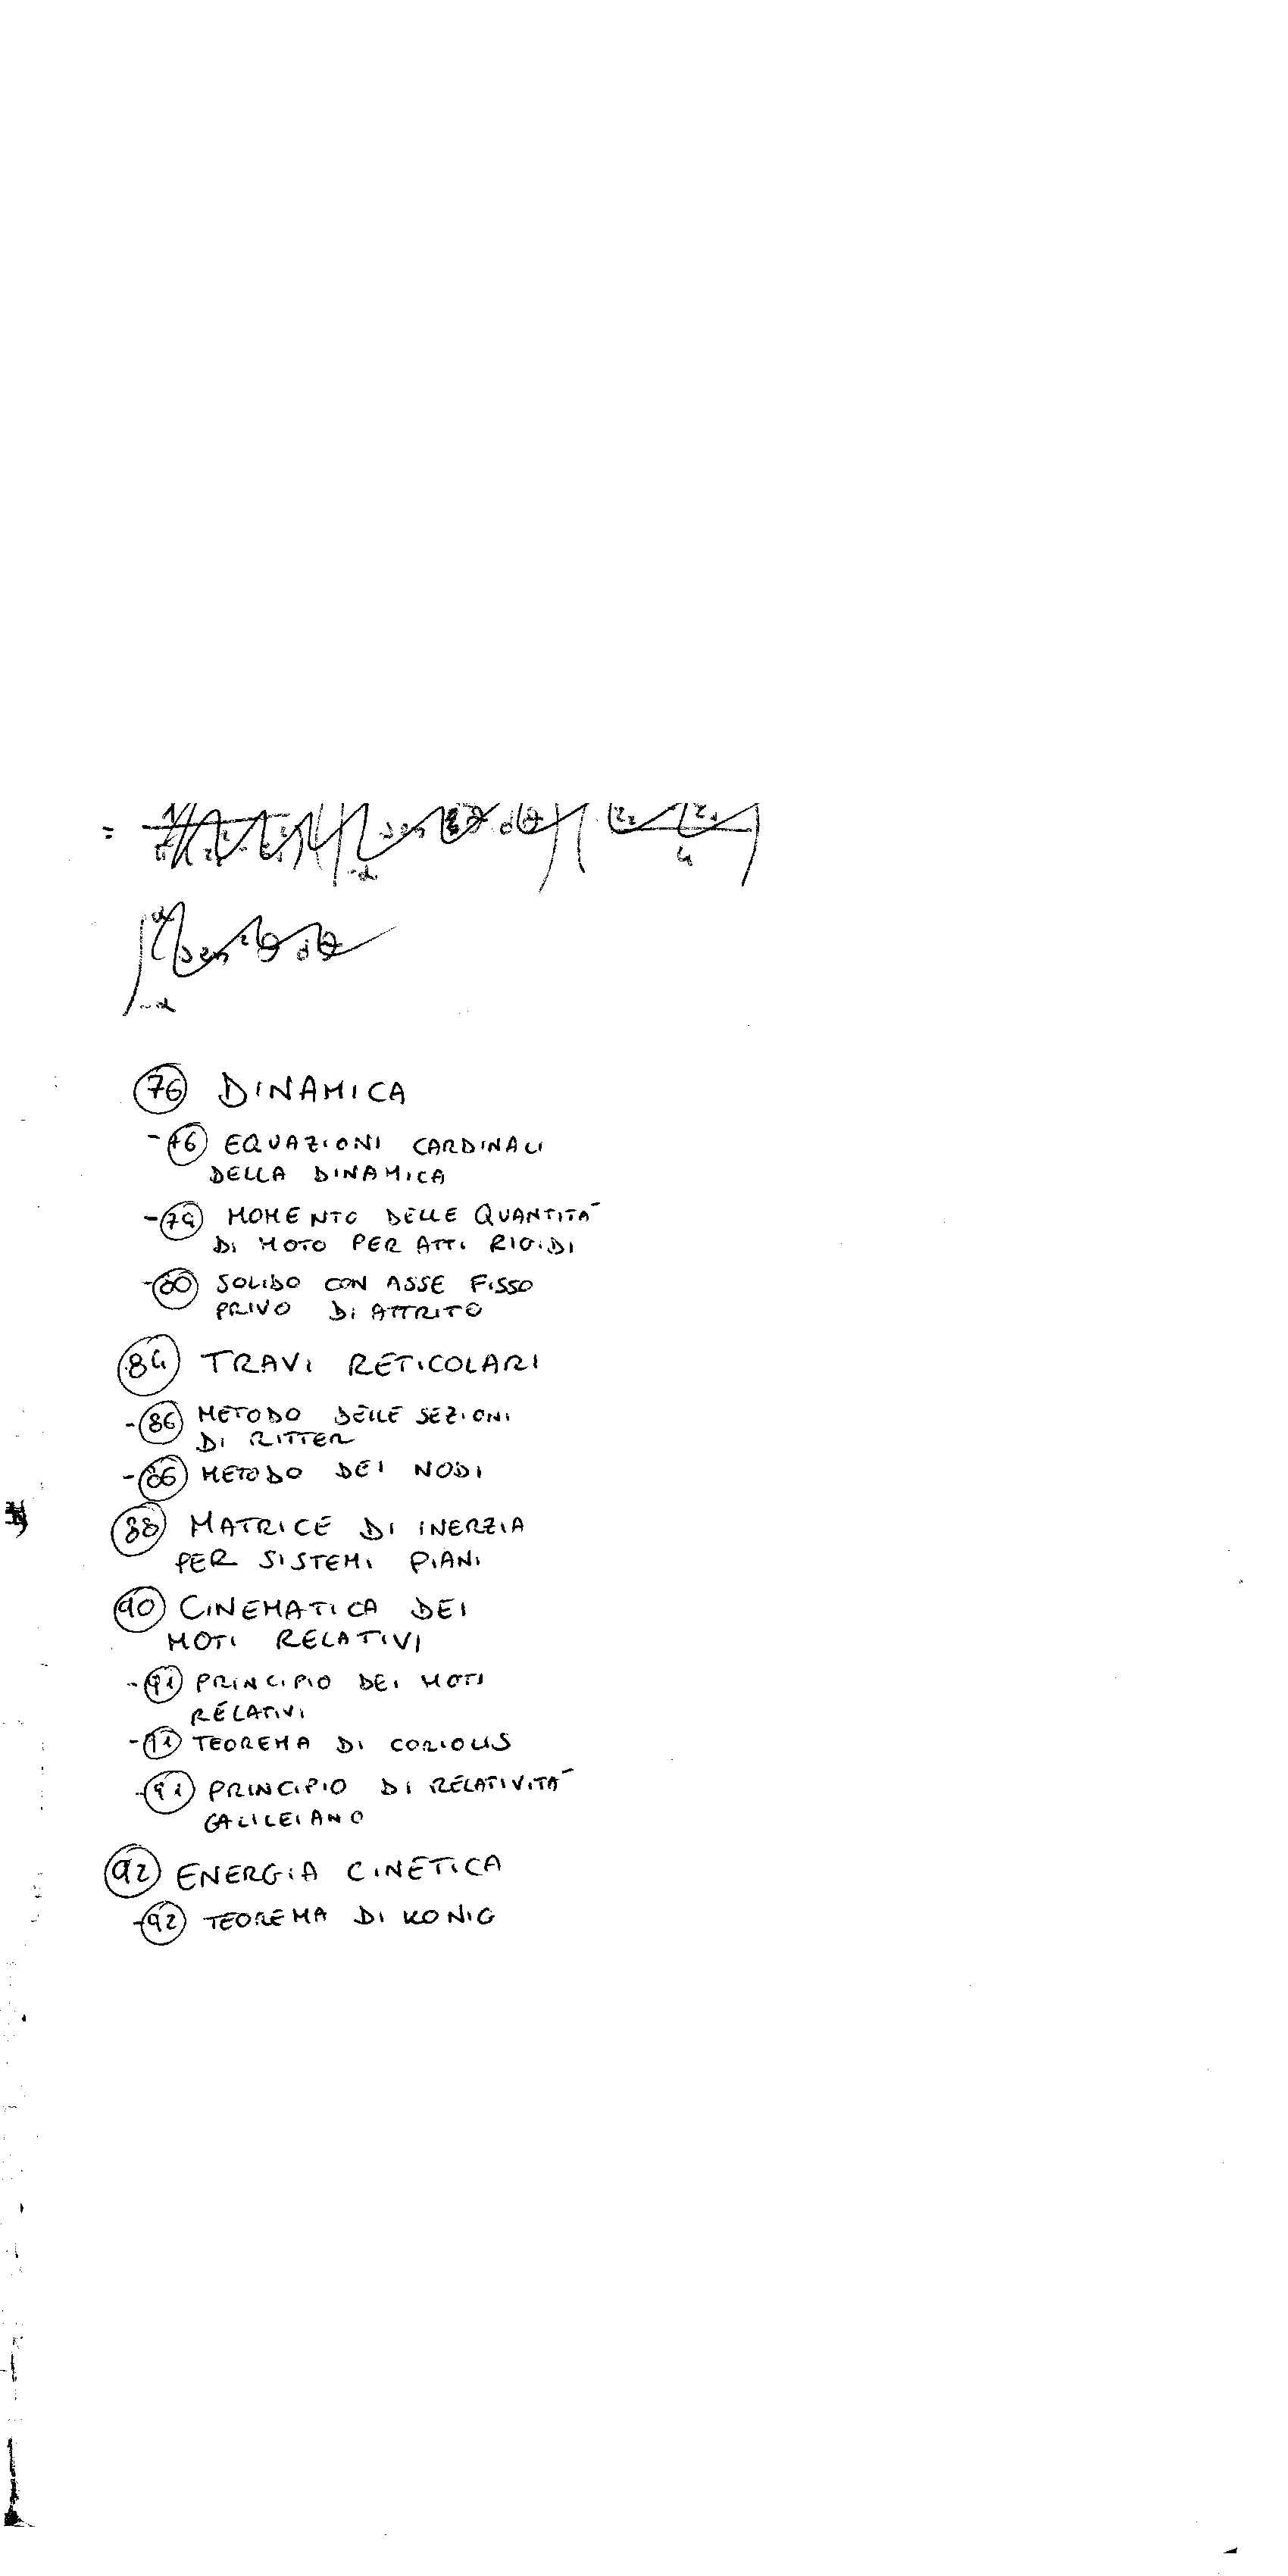 76 DINAMICA
- 76 EQUAZIONI CARDINALI
DELLA DINAMICA
- 79 MOMENTO DELLE QUANTITÀ
DI MOTO PER ATTI RIGIDI
- 80 SOLIDO CON ASSE FISSO
PRIVO DI ATTRITO
84 TRAVI RETICOLARI
- 86 METODO DELLE SEZIONI
DI RITTER
- 86 METODO DEI NODI
88 MATRICE DI INERZIA
PER SISTEMI PIANI
90 CINEMATICA DEI
MOTI RELATIVI
- 91 PRINCIPIO DEI MOTI
RELATIVI
- 91 TEOREMA DI CORIOLIS
- 91 PRINCIPIO DI RELATIVITÀ
GALILEIANO
92 ENERGIA CINETICA
- 92 TEOREMA DI KONIG